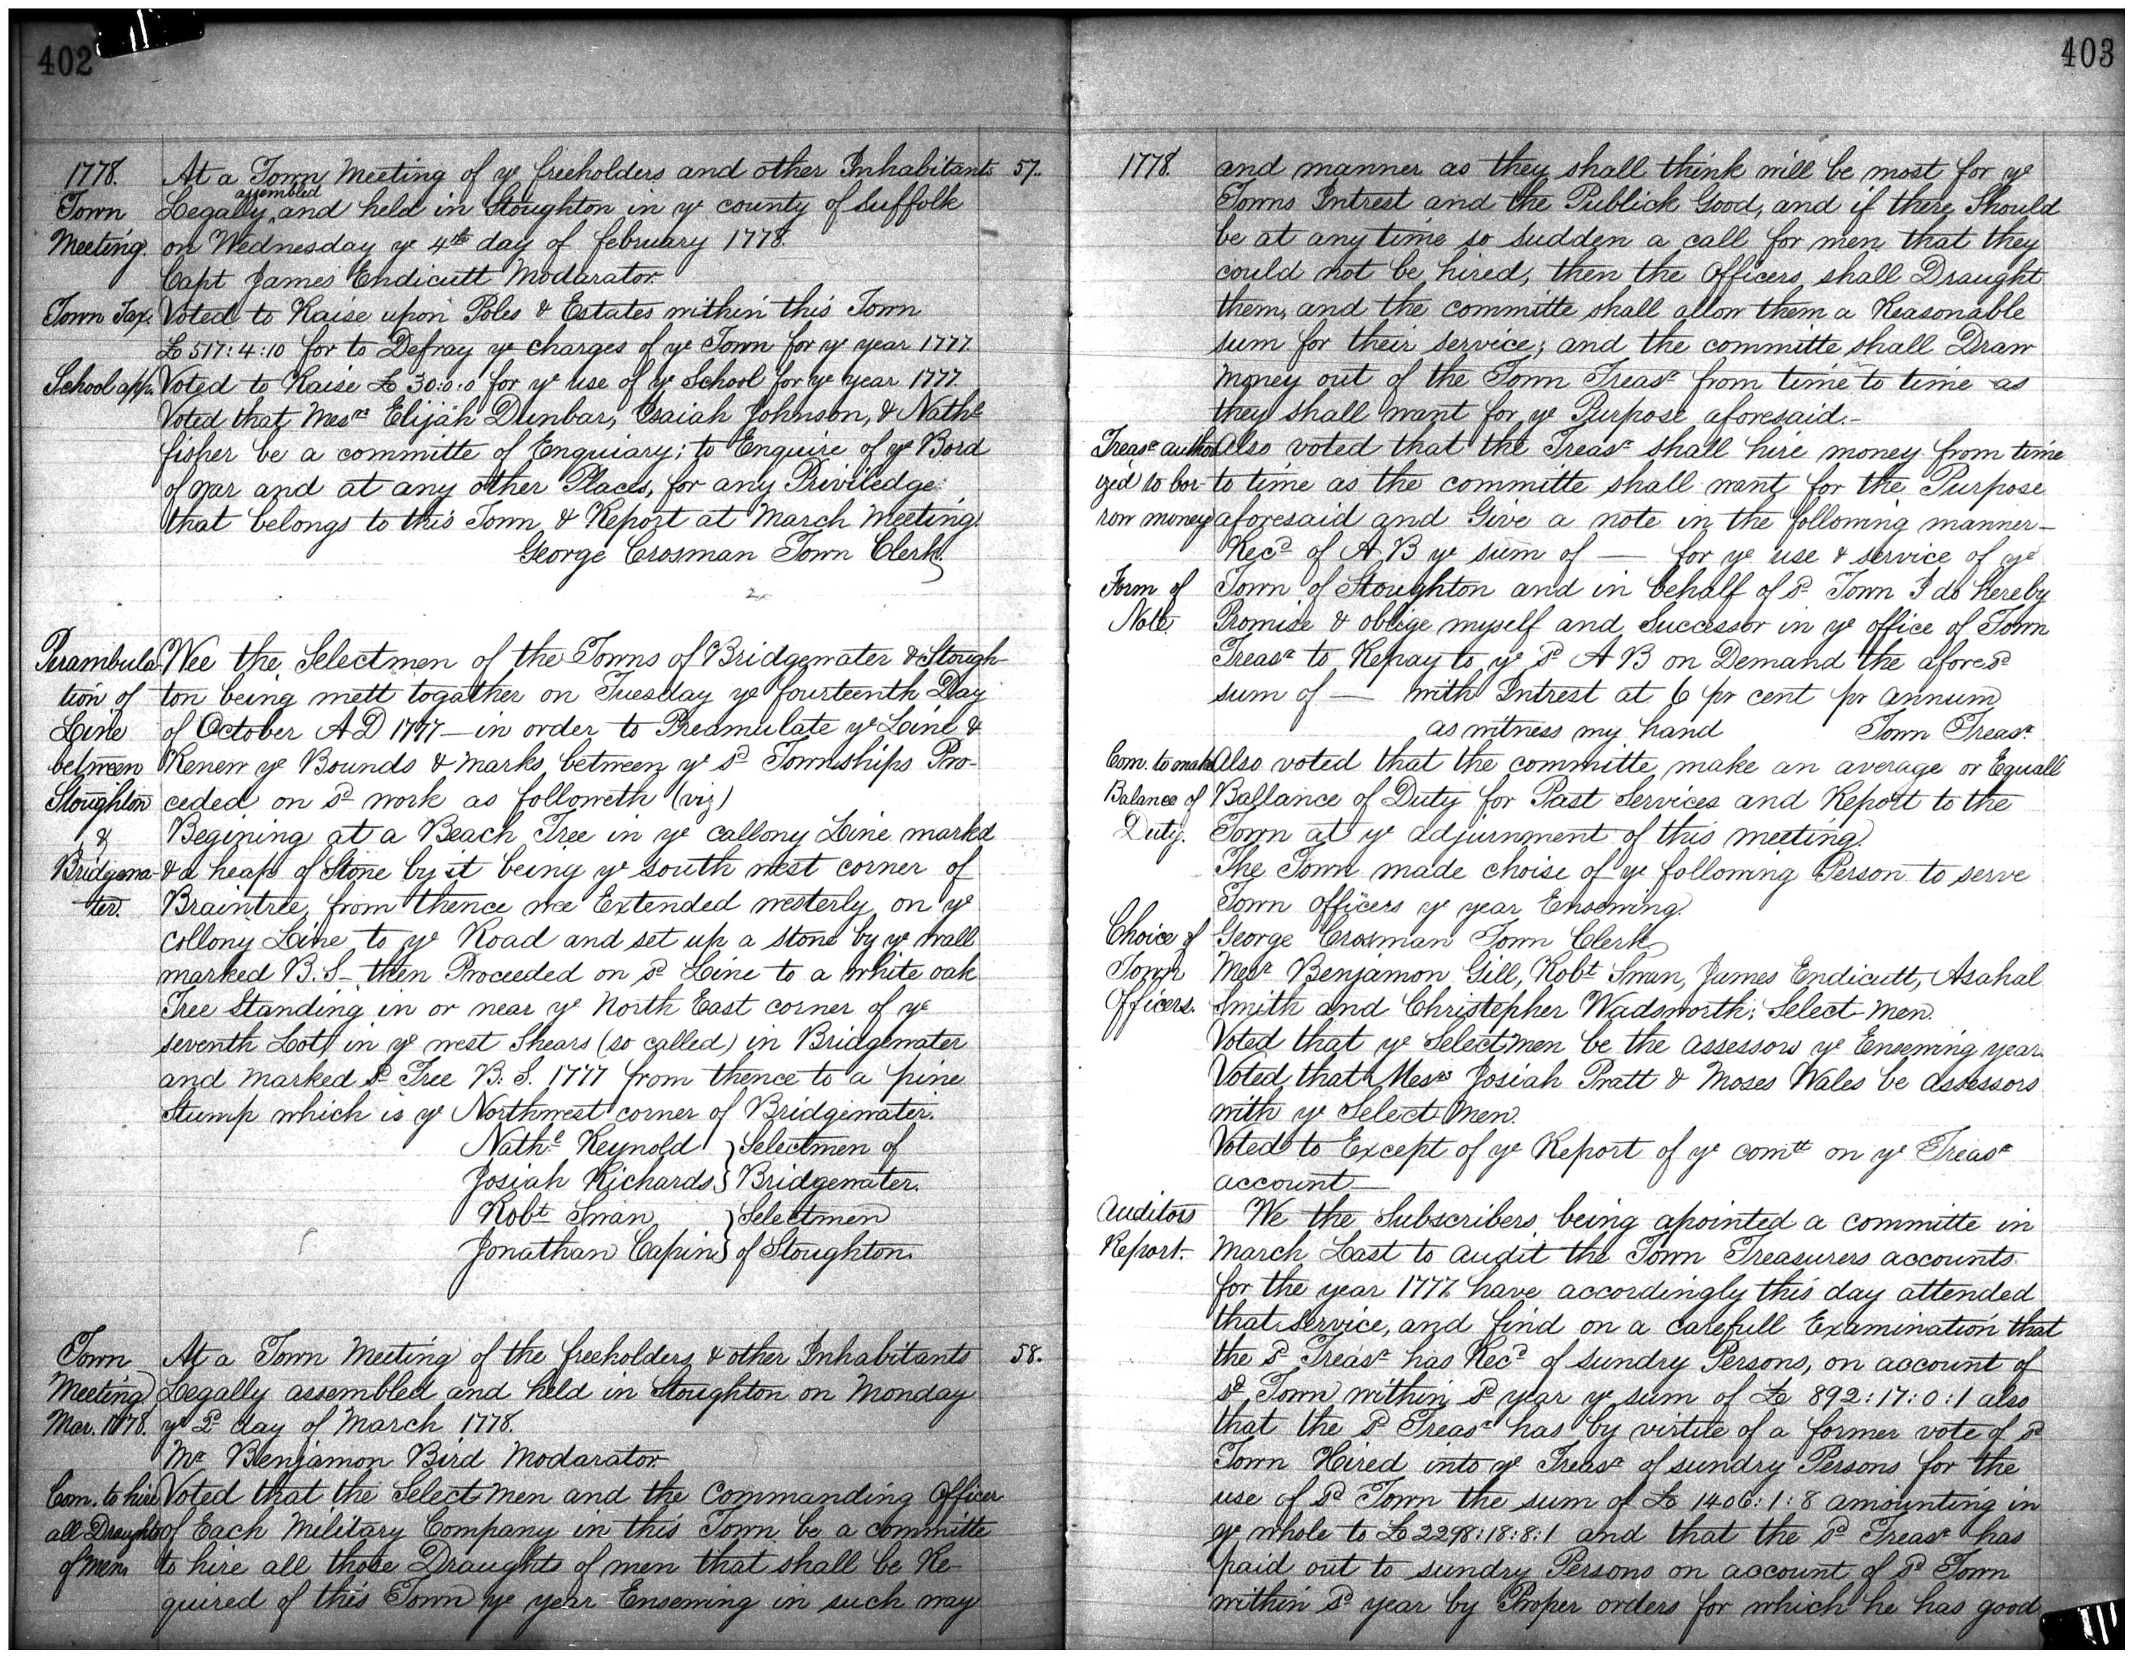 402
1778. At a Town Meeting of ye freeholders and other Inhabitants 57.
Town Legally assembled and held in Stoughton in ye county of Suffolk
Meeting. on Wednesday ye 4th day of february 1778.
Capt James Endicutt Modarator.
Town Tax. Voted to Raise upon Poles & Estates within this Town
£517:4:10 for to Defray ye charges of ye Town for ye year 1777.
School app. Voted to Raise £30:0:0 for ye use of ye School for ye year 1777.
Voted that Mesrs Elijah Dunbar, Isaiah Johnson, & Nathl
fisher be a committe of Enquiary; to Enquire of ye Bord
of war and at any other Places, for any Priviledge
that belongs to this Town & Report at March Meeting.
George Crosman Town Clerk.
Perambula- Wee the Selectmen of the Towns of Bridgewater & Stough-
tion of ton being mett togather on Tuesday ye fourteenth Day
Line of October A D 1777 — in order to Preamulate ye Line &
between Renew ye Bounds & marks between ye sd Townships Pro-
Stoughton ceded on sd work as followeth (viz)
& Begining at a Beach Tree in ye collony Line marked
Bridgewa- & a heap of Stone by it being ye south west corner of
ter. Braintree, from thence we Extended westerly on ye
Collony Line to ye Road and set up a stone by ye wall
marked B.S. then Proceeded on sd Line to a white oak
Tree Standing in or near ye North East corner of ye
seventh Lot, in ye west Shears (so called) in Bridgewater
and marked sd Tree B. S. 1777 from thence to a pine
Stump which is ye Northwest corner of Bridgewater.
Nathl Reynold } Selectmen of
Josiah Richards } Bridgewater.
Robt Swan } Selectmen
Jonathan Capin } of Stoughton.
Town At a Town Meeting of the freeholders & other Inhabitants 58.
Meeting Legally assembled and held in Stoughton on Monday
Mar. 1778. ye 2d day of March 1778.
Mr Benjamon Bird Modarator.
Com. to hire Voted that the Select Men and the Commanding Officer
all Draughts of Each Military Company in this Town be a committe
of Men to hire all those Draughts of men that shall be Re-
quired of this Town ye year Ensewing in such way
403
1778. and manner as they shall think will be most for ye
Towns Intrest and the Publick Good, and if there Should
be at any time so sudden a call for men that they
could not be hired, then the Officers shall Draught
them, and the committe shall allow them a Reasonable
sum for their service; and the committe shall Draw
Money out of the Town Treasr from time to time as
they shall want for ye Purpose aforesaid.-
Treasr author- Also voted that the Treasr shall hire money from time
ized to bor- to time as the committe shall want for the Purpose
row money aforesaid and Give a note in the following manner—
Recd of A B ye sum of — for ye use & service of ye
Form of Town of Stoughton and in behalf of sd Town I do hereby
Note. Promise & oblige myself and Successor in ye office of Town
Treasr to Repay to ye sd A B on Demand the aforesd
sum of — with Intrest at 6 pr cent pr annum
as witness my hand Town Treasr
Com. to make Also voted that the committe make an average or Equall
Balance of Ballance of Duty for Past Services and Report to the
Duty. Town at ye adjurnment of this meeting.
The Town made choise of ye following Person to serve
Town officers ye year Ensewing.
Choice of George Crosman Town Clerk
Town Mesr Benjamon Gill, Robt Swan, James Endicutt, Asahal
Officers. Smith and Christepher Wadsworth; Select-Men.
Voted that ye Selectmen be the assessors ye Ensewing year.
Voted, that Mesrs Josiah Pratt & Moses Wales be assessors
with ye Select Men.
Voted to Except of ye Report of ye comtt on ye Treasr
account—
Auditors We the Subscribers being apointed a committe in
Report. March Last to audit the Town Treasurers accounts
for the year 1777 have accordingly this day attended
that service, and find on a carefull Examination that
the sd Treasr has Recd of sundry Persons, on account of
sd Town within sd year ye sum of £ 892:17:0:1 also
that the sd Treasr has by virtue of a former vote of sd
Town Hired into ye Treasr of sundry Persons for the
use of sd Town the sum of £ 1406:1:8 amounting in
ye whole to £2298:18:8:1 and that the sd Treasr has
paid out to sundry Persons on account of sd Town
within sd year by Proper orders for which he has good